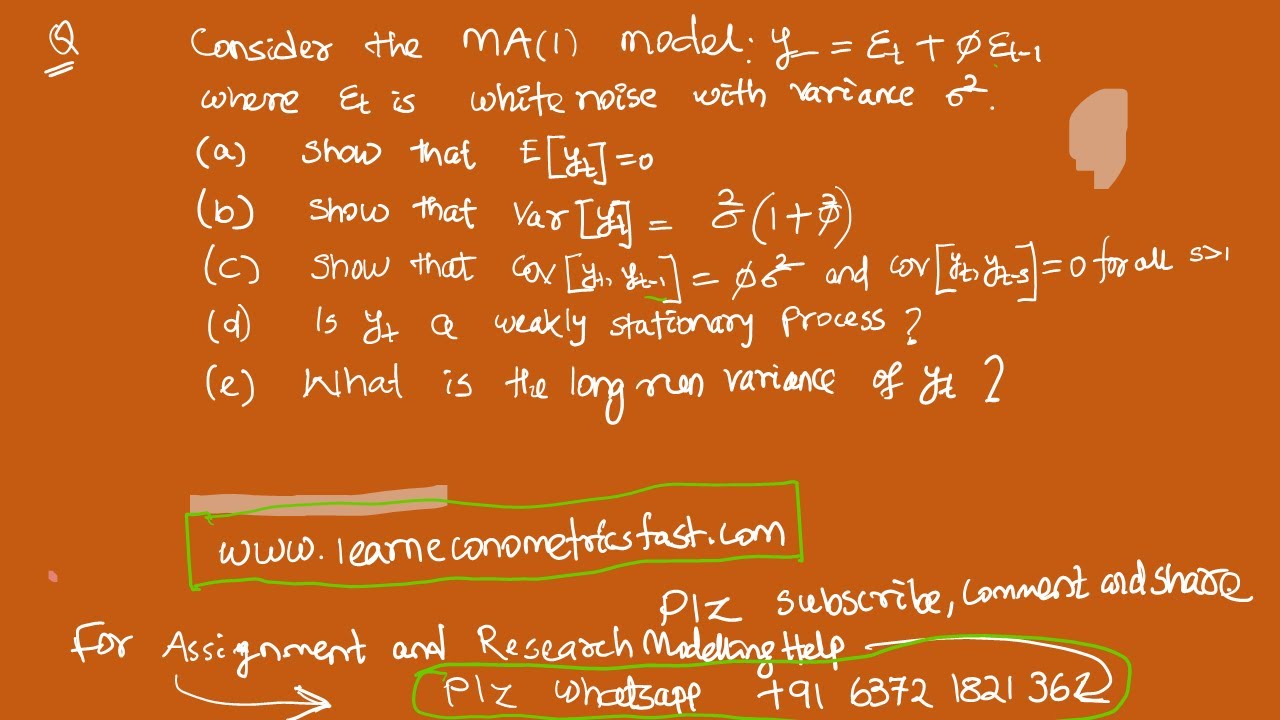 Q Consider the MA(1) model: y_ = εt + φ εt-1
where εt is white noise with variance σ².
(a) Show that E[yt] = 0
(b) Show that Var[yt] = σ²(1+φ²)
(c) Show that Cov[yt, yt-1] = φσ² and cov[yt, yt-s] = 0 for all s>1
(d) Is yt a weakly stationary process?
(e) What is the long run variance of yt?
www.learneconometricsfast.com
Plz subscribe, comment and share
For Assignment and Research Modelling Help
Plz whatsapp +91 6372 1821 362